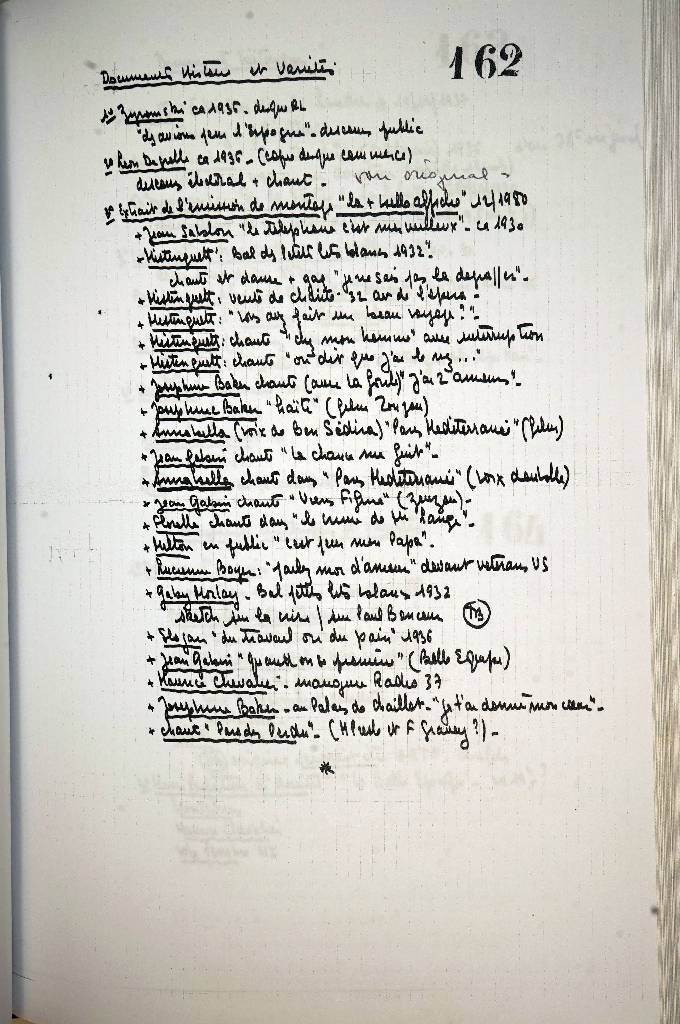 162
Documents Histoire et Variétés
1° Zyromski ca 1936 - disque RL
"des avions pour l'Espagne" - discours public
2° Léon Degrelle ca 1936 - (copie disque commerce)
discours électoral + chant - voir original -
3° Extrait de l'émission de montage "la + belle affiche" 12/1980
+ Jean Sablon "le téléphone c'est merveilleux" - ca 1930
+ Mistinguett : Bal des Petits lits blancs 1932".
chant et danse + gag "je ne sais pas la depasser" -
+ Mistinguett : vente de charité 32 av de l'opera -
+ Mistinguett : "Vous avez fait un beau voyage ?" -
+ Mistinguett : chante "mon homme" avec interruption
+ Mistinguett : chante "on dit que j'ai le nez ..."
+ Josephine Baker chante (avec la foule) "j'ai 2 amours" -
+ Josephine Baker "haïti" (film Zouzou)
+ Annabella (voix de Ben Sedira) "Paris Mediterranée" (film)
+ Jean Gabin chante "la chance me fuit" -
+ Annabella chante dans "Paris Mediterranée" (voix doublée)
+ Jean Gabin chante "Viens Fifine" (Zouzou) -
+ Florelle chante dans "le crime de Mr Lange" -
+ Milton en public "c'est pour mon Papa" -
+ Lucienne Boyer : "parlez moi d'amour" devant vétérans US
+ Gaby Morlay - Bal petits lits blancs 1932
sketch sur la crise / sur Paul Boncour TB
+ Slogan "du travail ou du pain" 1936
+ Jean Gabin "Quand on se promène" (Belle Equipe)
+ Maurice Chevalier - inaugure Radio 37
+ Josephine Baker - au Palais de Chaillot - "je t'ai donné mon cœur" -
+ chant "Paradis Perdu" - (M Presle et F Gravey ?) -
*